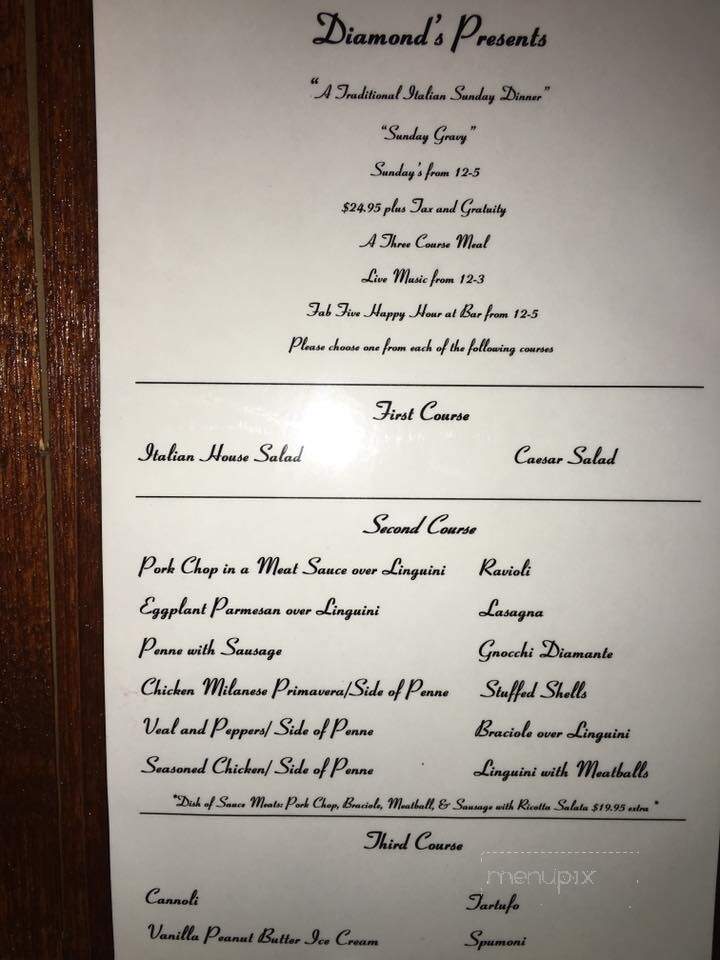 Diamond's Presents
"A Traditional Italian Sunday Dinner"
"Sunday Gravy"
Sunday's from 12-5
$24.95 plus Tax and Gratuity
A Three Course Meal
Live Music from 12-3
Fab Five Happy Hour at Bar from 12-5
Please choose one from each of the following courses
First Course
Italian House Salad Caesar Salad
Second Course
Pork Chop in a Meat Sauce over Linguini Ravioli
Eggplant Parmesan over Linguini Lasagna
Penne with Sausage Gnocchi Diamante
Chicken Milanese Primavera/Side of Penne Stuffed Shells
Veal and Peppers/ Side of Penne Braciole over Linguini
Seasoned Chicken/ Side of Penne Linguini with Meatballs
*Dish of Sauce Meats: Pork Chop, Braciole, Meatball, & Sausage with Ricotta Salata $19.95 extra *
Third Course
menupix
Cannoli Tartufo
Vanilla Peanut Butter Ice Cream Spumoni